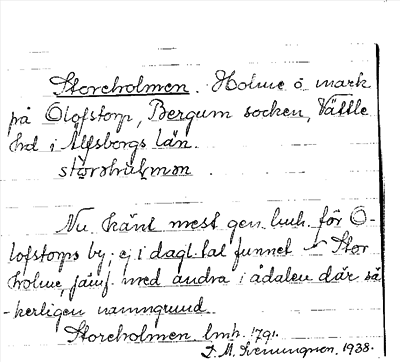 Storeholmen. Holme å mark
på Olofstorp, Bergum socken, Vättle
hd i Älfsborgs län.
storhulmən
Nu känt mest gen. lmh. för O-
lofstorps by; ej i dagl. tal funnet Stor
holme, jämf. med andra i ådalen där sä
-kerligen namngrund.
Storeholmen lmh. 1791.
1938.